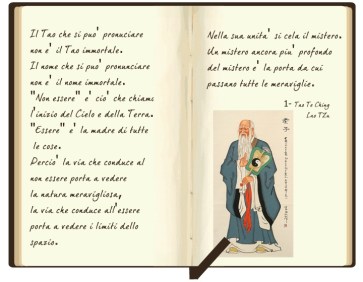 Il Tao che si puo' pronuciare
non e' il Tao immortale.
Il nome che si puo' pronunciare
non e' il nome immortale.
"Non essere" e' cio' che chiamo
l'inizio del Cielo e della Terra.
"Essere" e' la madre di tutte
le cose.
Percio' la via che conduce al
non essere porta a vedere
la natura meravigliosa,
la via che conduce all'essere
porta a vedere i limiti dello
spazio.
Nella sua unita' si cela il mistero.
Un mistero ancora piu' profondo
del mistero e' la porta da cui
passano tutte le meraviglie.
1- Tao Te Ching
Lao TZu
老子